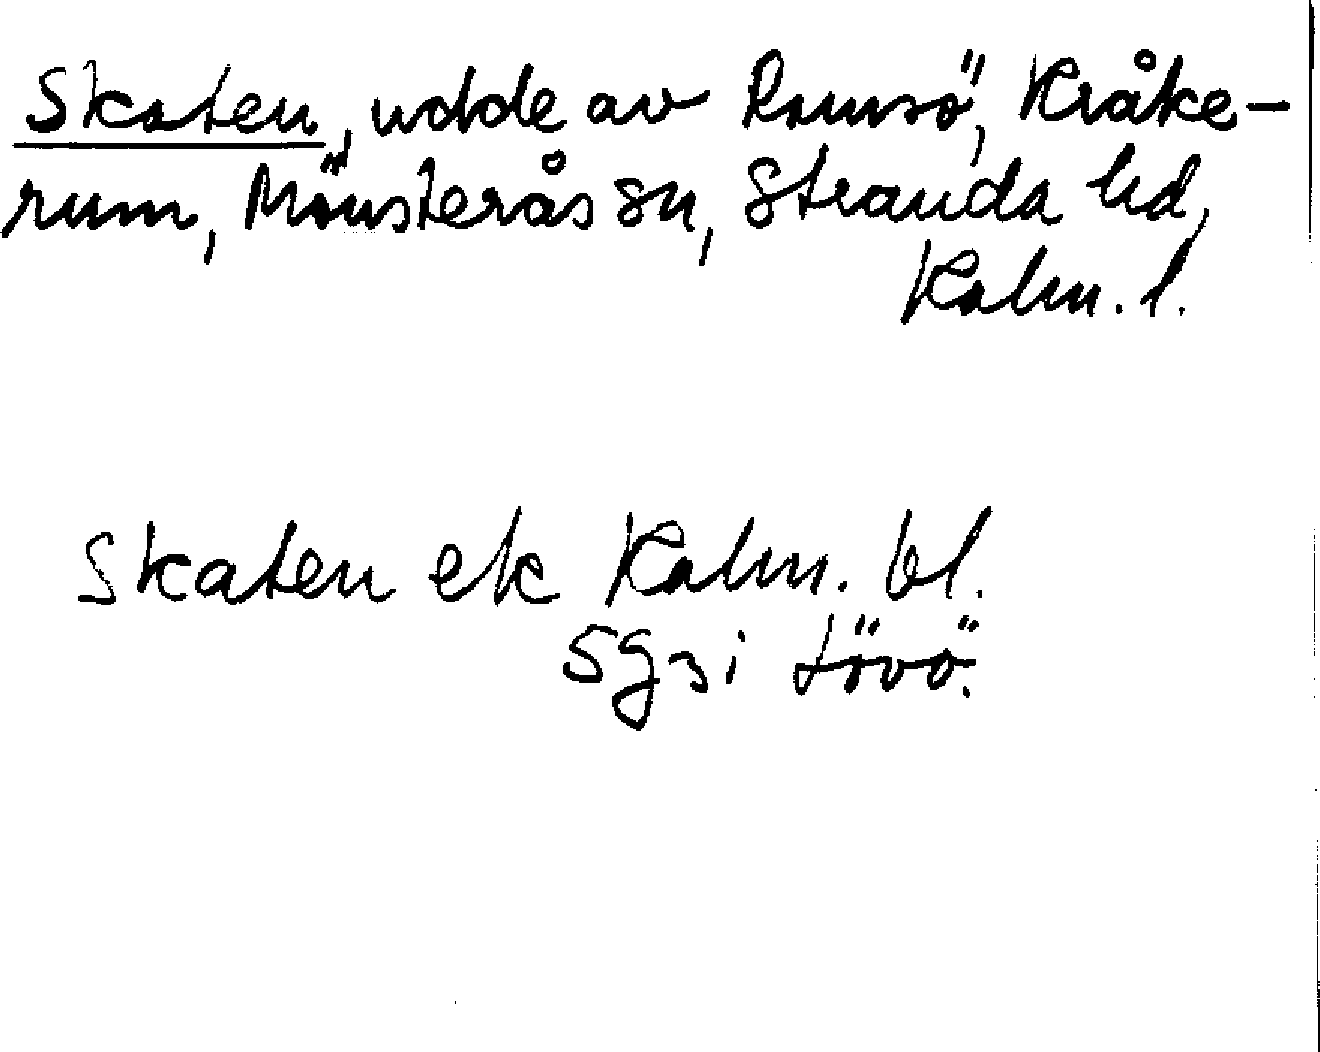 Skaten, udde av Ramsö, Kråke-
rum, Mönsterås sn, Stranda hd,
Kalm. l.
Skaten ek Kalm. bl.
5g3i Lövö.